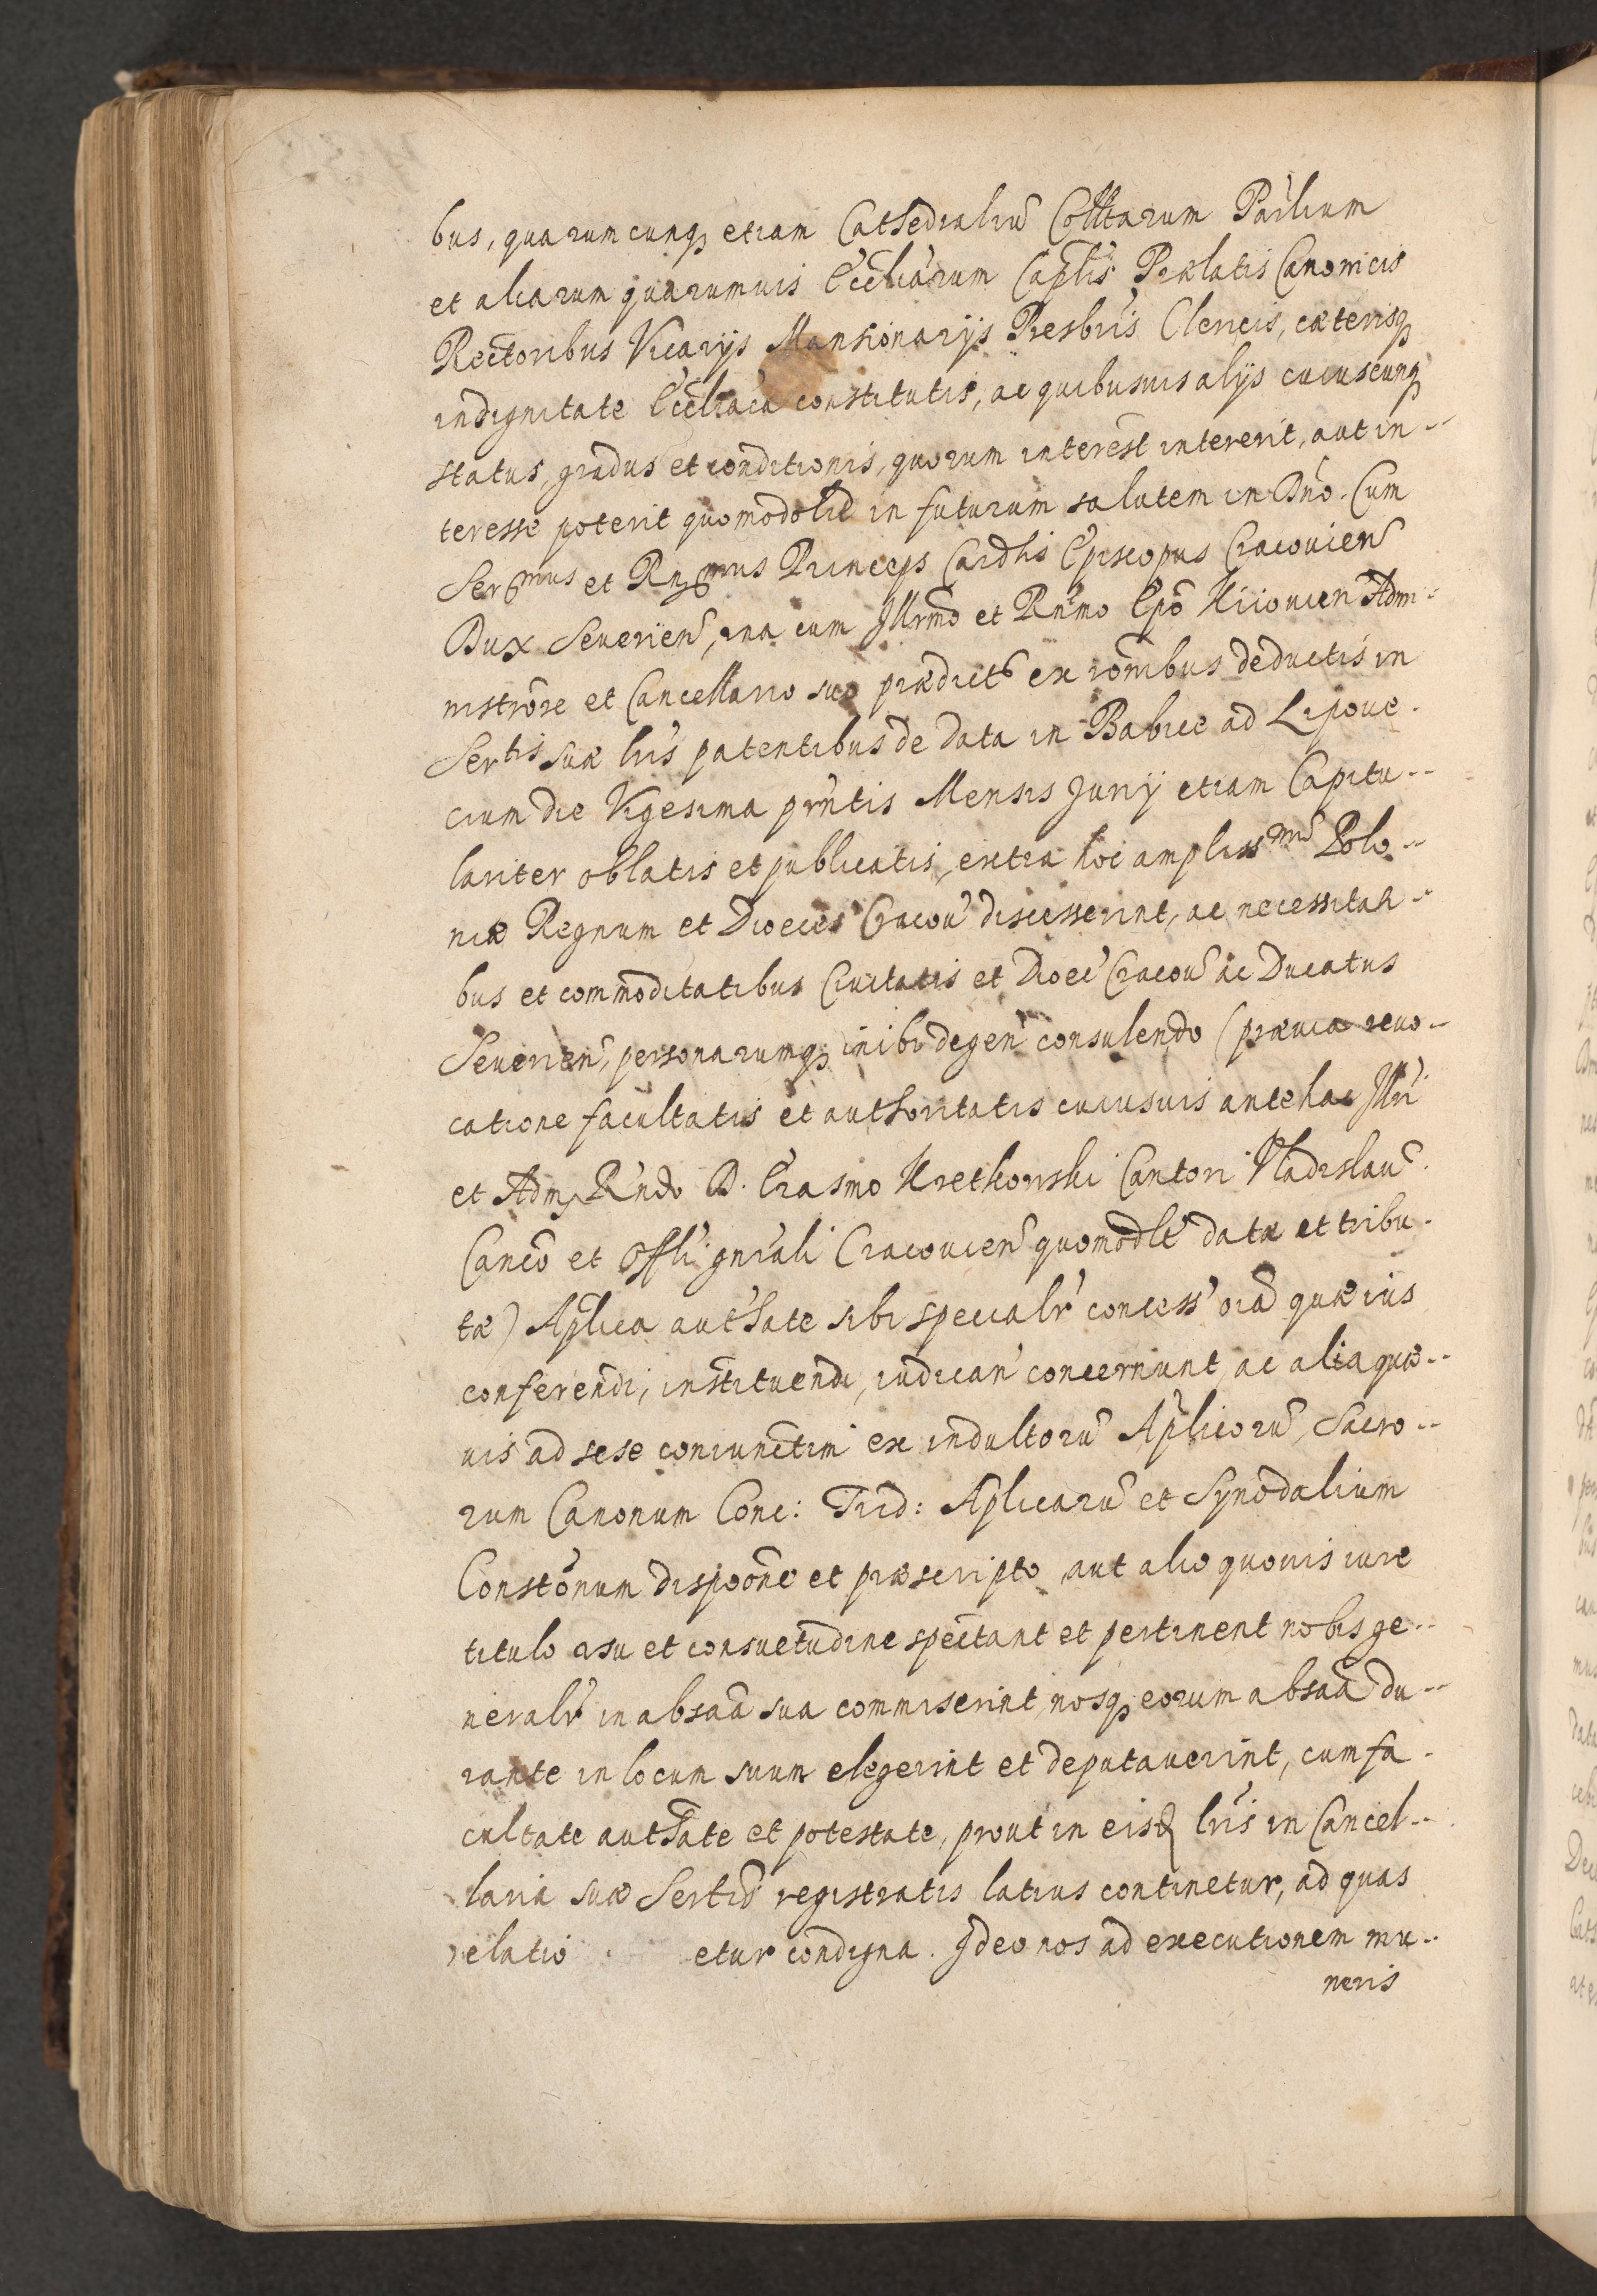 bus, quarumcunq etiam Cathedraliũ Colltarum Parlium
et aliarum quarumuis Eccliarum Caplis Prælatis Canonicis
Rectoribus Vicarijs Mansionarijs Presbris Clericis, cæterisq
in dignitate Eccliaca constitutis, ac quibusuis alijs cuiuscunq
status, gradus et conditionis, quorum interest intererit, aut in--
teresse poterit quomodolib in futurum salutem in Dno. Cum
Sermus et Rndmus Princeps Cardlis Episcopus Cracouien
Dux Seuerien, una cum Illrmo et Rndmo Epo Kiiouien Admi-
nistrore et Cancellario suo prædicto ex roñibus deductis in
Sertis suæ lris patentibus de data in Babice ad Lipoue-
cium die Vigesima pñtis Mensis Junij etiam Capitu--
lariter oblatis et publicatis, extra hoc ampliss^mũ Polo--
niæ Regnum et Dioeces Cracou discesserint, ac necessitati-
bus et commoditatibus Ciuitatis et Dioec Cracou ac Ducatus
Seuerien, personarumq inibi degen consulendo (præuia reuo-
catione facultatis et authoritatis cuiusuis antehac Illri
et Adm Rndo D. Erasmo Kretkowski Cantori Vladislau
Canco et Offli gnrali Cracouien quomodlt datæ et tribu-
tæ) Aplica authate sibi specialr concess oia quæ ius
conferendi, instituendi, iudican concernunt, ac alia quæ--
uis ad sese coniunctim ex indultorũ Aplicorũ, Sacro--
rum Canonum Conc: Trid: Aplicarũ et Synodalium
Constonum dispoone et præscripto aut alio quouis iure
titulo usu et consuetudine spectant et pertinent nobis ge--
neralr in absaa sua commiserint, nosq eorum absaa du--
rante in locum suum elegerint et deputauerint, cum fa-
cultate authate et potestate, prout in eisd lris in Cancel--
laria suæ Sertis registratis latius continetur, ad quas
relatio etur condigna. Ideo nos ad executionem mu--
neris